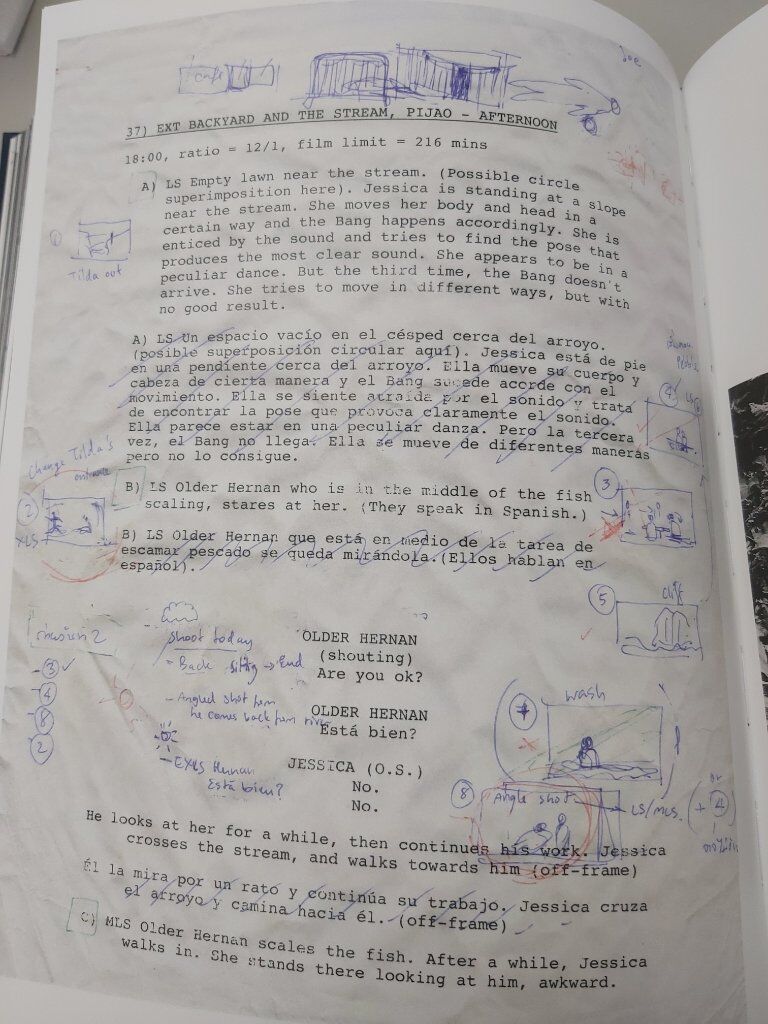 Joe
37) EXT BACKYARD AND THE STREAM, PIJAO - AFTERNOON
18:00, ratio = 12/1, film limit = 216 mins
A) LS Empty lawn near the stream. (Possible circle
superimposition here). Jessica is standing at a slope
near the stream. She moves her body and head in a
certain way and the Bang happens accordingly. She is
enticed by the sound and tries to find the pose that
produces the most clear sound. She appears to be in a
peculiar dance. But the third time, the Bang doesn't
arrive. She tries to move in different ways, but with
no good result.
1
Tilda out
A) LS Un espacio vacío en el césped cerca del arroyo.
(posible superposición circular aquí). Jessica está de pie
en una pendiente cerca del arroyo. Ella mueve su cuerpo y
cabeza de cierta manera y el Bang sucede acorde con el
movimiento. Ella se siente atraída por el sonido y trata
de encontrar la pose que provoca claramente el sonido.
Ella parece estar en una peculiar danza. Pero la tercera
vez, el Bang no llega. Ella se mueve de diferentes maneras
pero no lo consigue.
4 LS
Change Tilda's
entrance
2
XLS
B) LS Older Hernan who is in the middle of the fish
scaling, stares at her. (They speak in Spanish.)
3
B) LS Older Hernan que está en medio de la tarea de
escamar pescado se queda mirándola.(Ellos hablan en
español).
5
cliff
OLDER HERNAN
(shouting)
Are you ok?
OLDER HERNAN
Está bien?
JESSICA (O.S.)
No.
No.
2
3
4
8
2
shoot today
- Back sitting → End
- Angled shot hern
he comes back from river
- EXLS Hernan
Está bien?
wash
8
Angle shot
LS/MLS.
(+ 4
or
He looks at her for a while, then continues his work. Jessica
crosses the stream, and walks towards him (off-frame)
Él la mira por un rato y continúa su trabajo. Jessica cruza
el arroyo y camina hacia él. (off-frame)
C) MLS Older Hernan scales the fish. After a while, Jessica
walks in. She stands there looking at him, awkward.